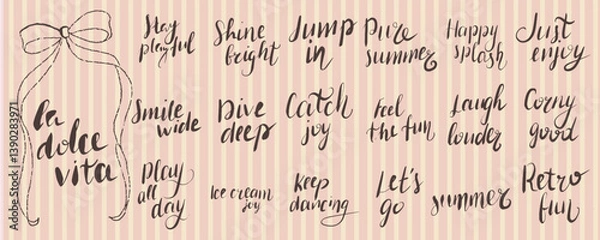 la
dolce
vita
Stay
playful
Shine
bright
Jump
in
Pure
summer
Happy
splash
Just
enjoy
Smile
wide
Dive
deep
Catch
joy
Feel
the fun
Laugh
louder
Corny
good
Play
all
day
Ice cream
joy
Keep
dancing
Let's
go
summer
Retro
fun
Adobe Stock | #1390283971